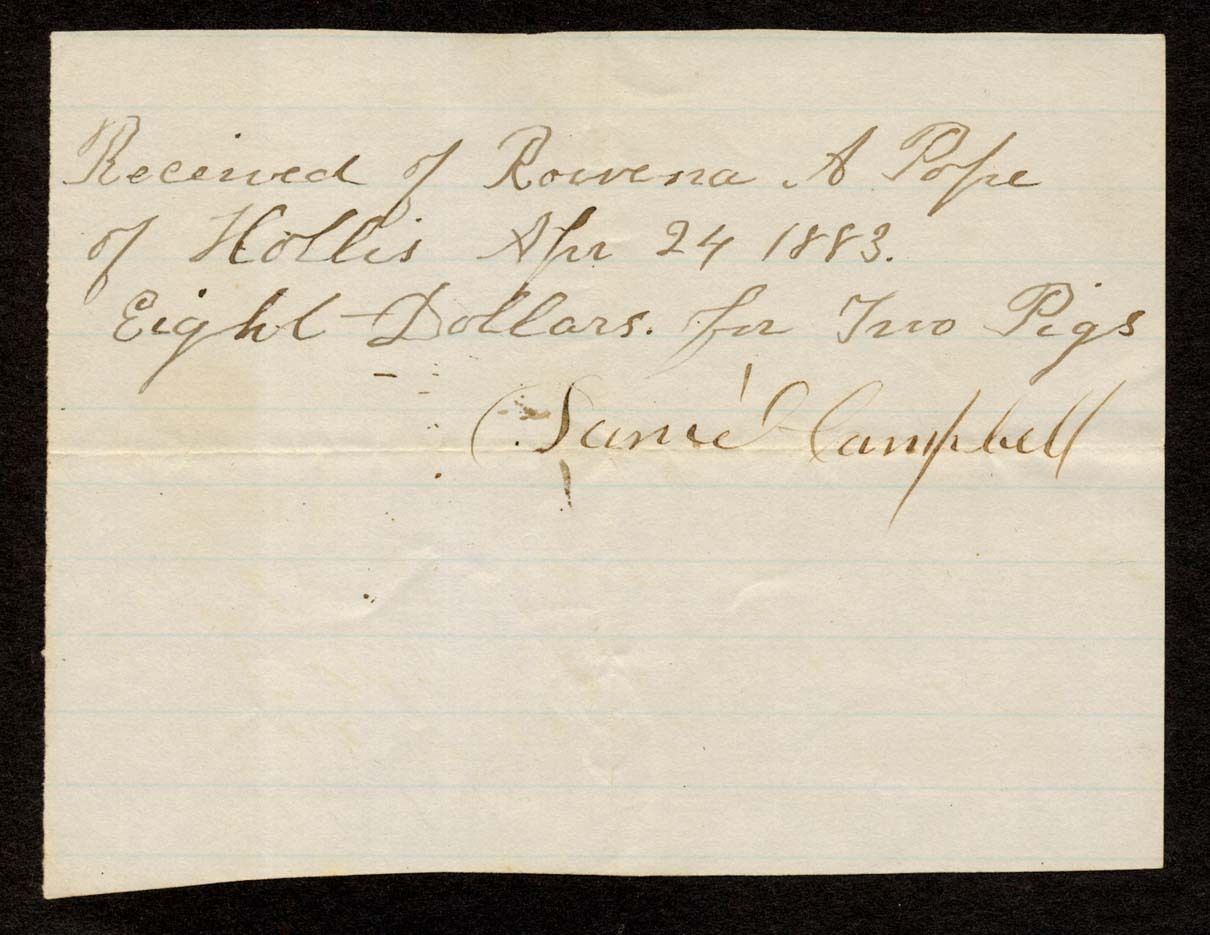 Received of Rowena A Pope
of Hollis Apr 24 1883.
Eight Dollars. for Two Pigs
Sam'l Campbell